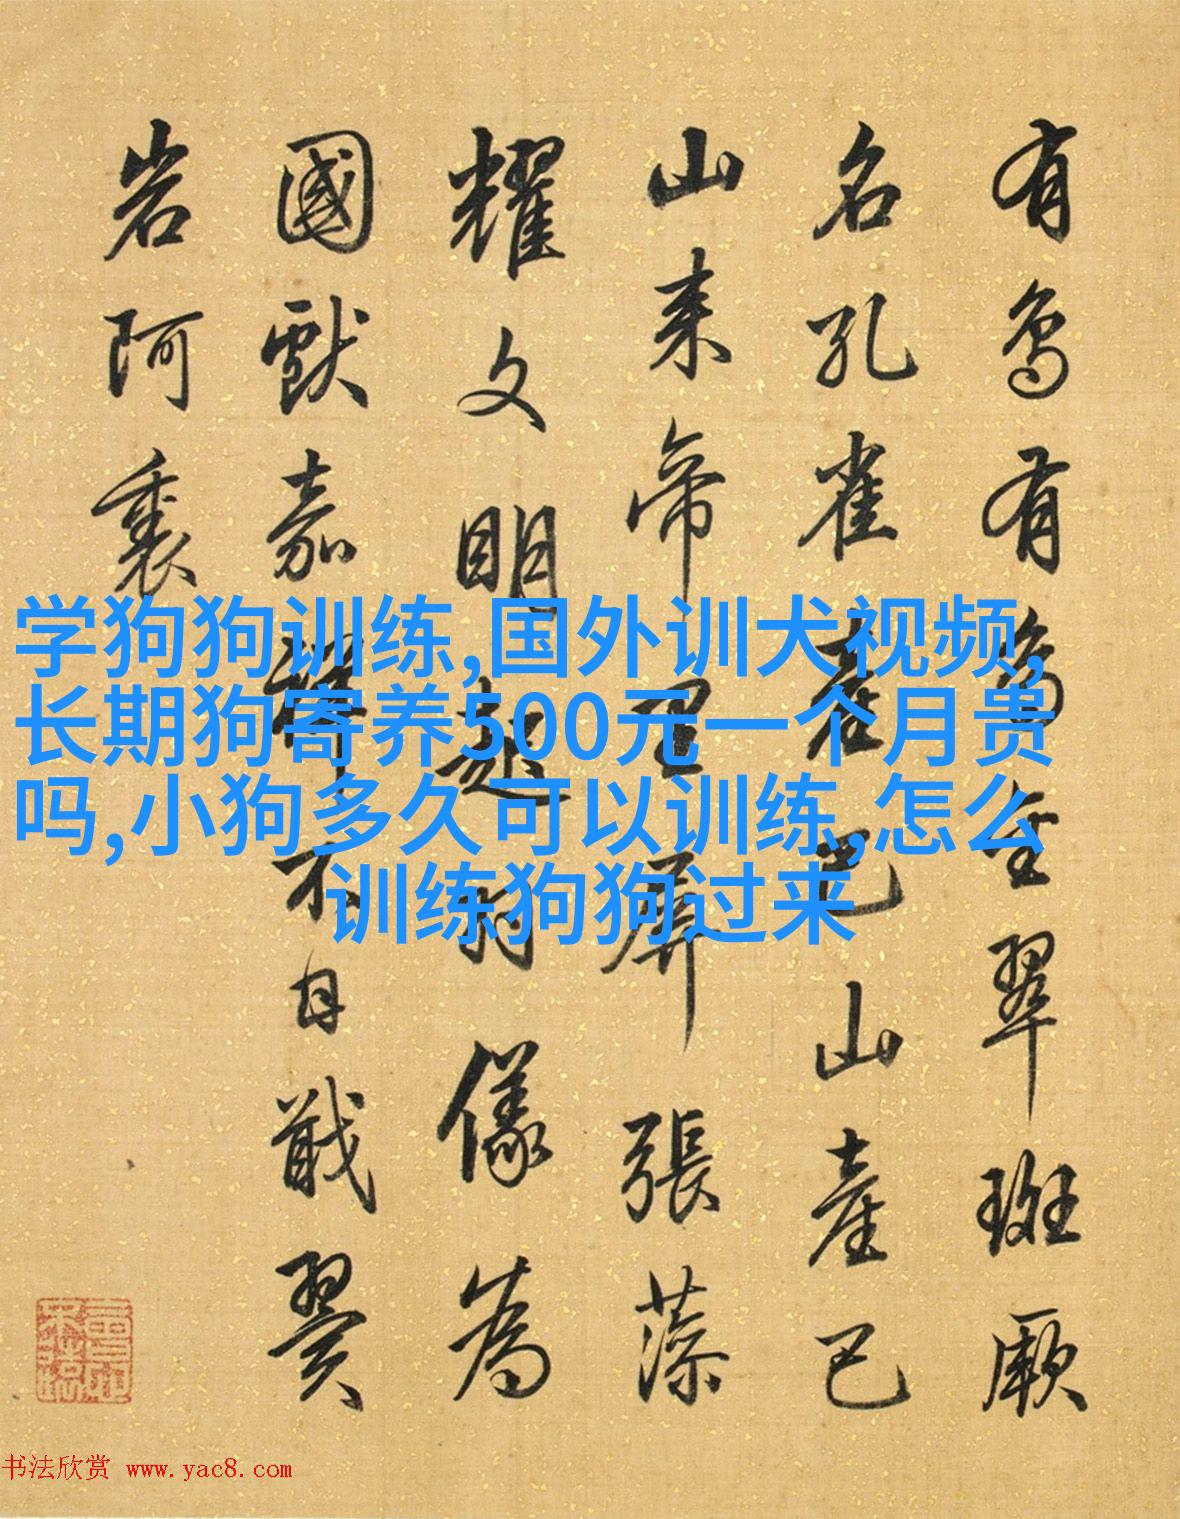 有鳥有鳥金翠斑厥
名孔雀產巴山產巴
山来帝里屏張藻
耀文明趂羽儀為
國獻嘉禪不自戢翼
岩阿裏
学狗狗训练,国外训犬视频,
长期狗寄养500元一个月贵
吗,小狗多久可以训练,怎么
训练狗狗过来
书法欣赏 www.yac8.com